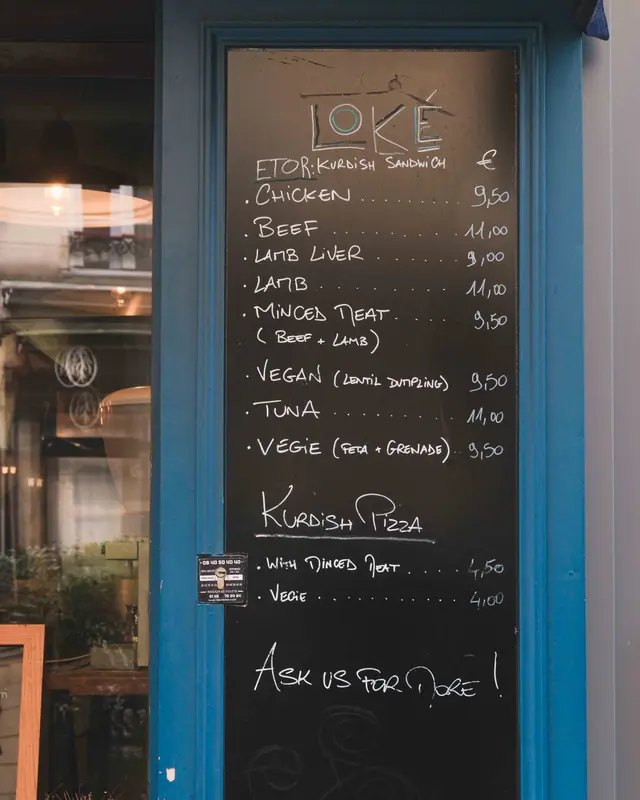 LOKÉ
ETOR: KURDISH SANDWICH €
· CHICKEN ........ 9,50
· BEEF ........ 11,00
· LAMB LIVER ...... 9,00
· LAMB ........ 11,00
· MINCED MEAT ..... 9,50
( BEEF + LAMB )
· VEGAN (LENTIL DUMPLING) 9,50
· TUNA ........ 11,00
· VEGIE (FETA + GRENADE).. 9,50
KURDISH PIZZA
· WITH MINCED MEAT ..... 4,50
· VEGIE ......... 4,00
ASK US FOR MORE !
08 40 50 40 40